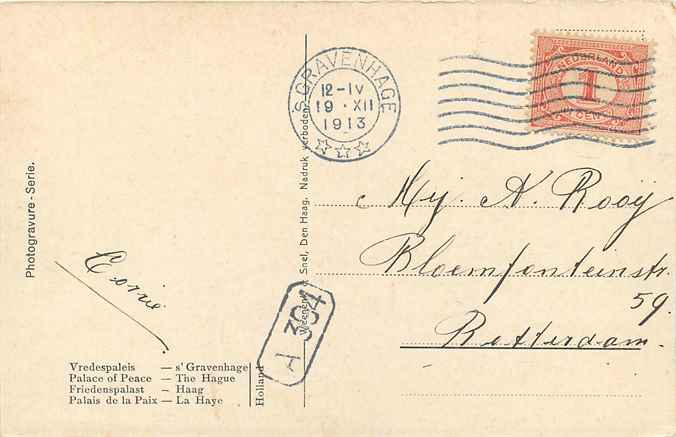 Photogravure - Serie.
'S GRAVENHAGE
12-IV
19 · XII
1913
NEDERLAND
1
CENT
Mej. A. Rooij
Bloemfonteinstr.
59.
Rotterdam.
Corrie
Snel, Den Haag. Nadruk verboden.
394
Vredespaleis — s' Gravenhage
Palace of Peace — The Hague
Friedenspalast — Haag
Palais de la Paix — La Haye
Holland